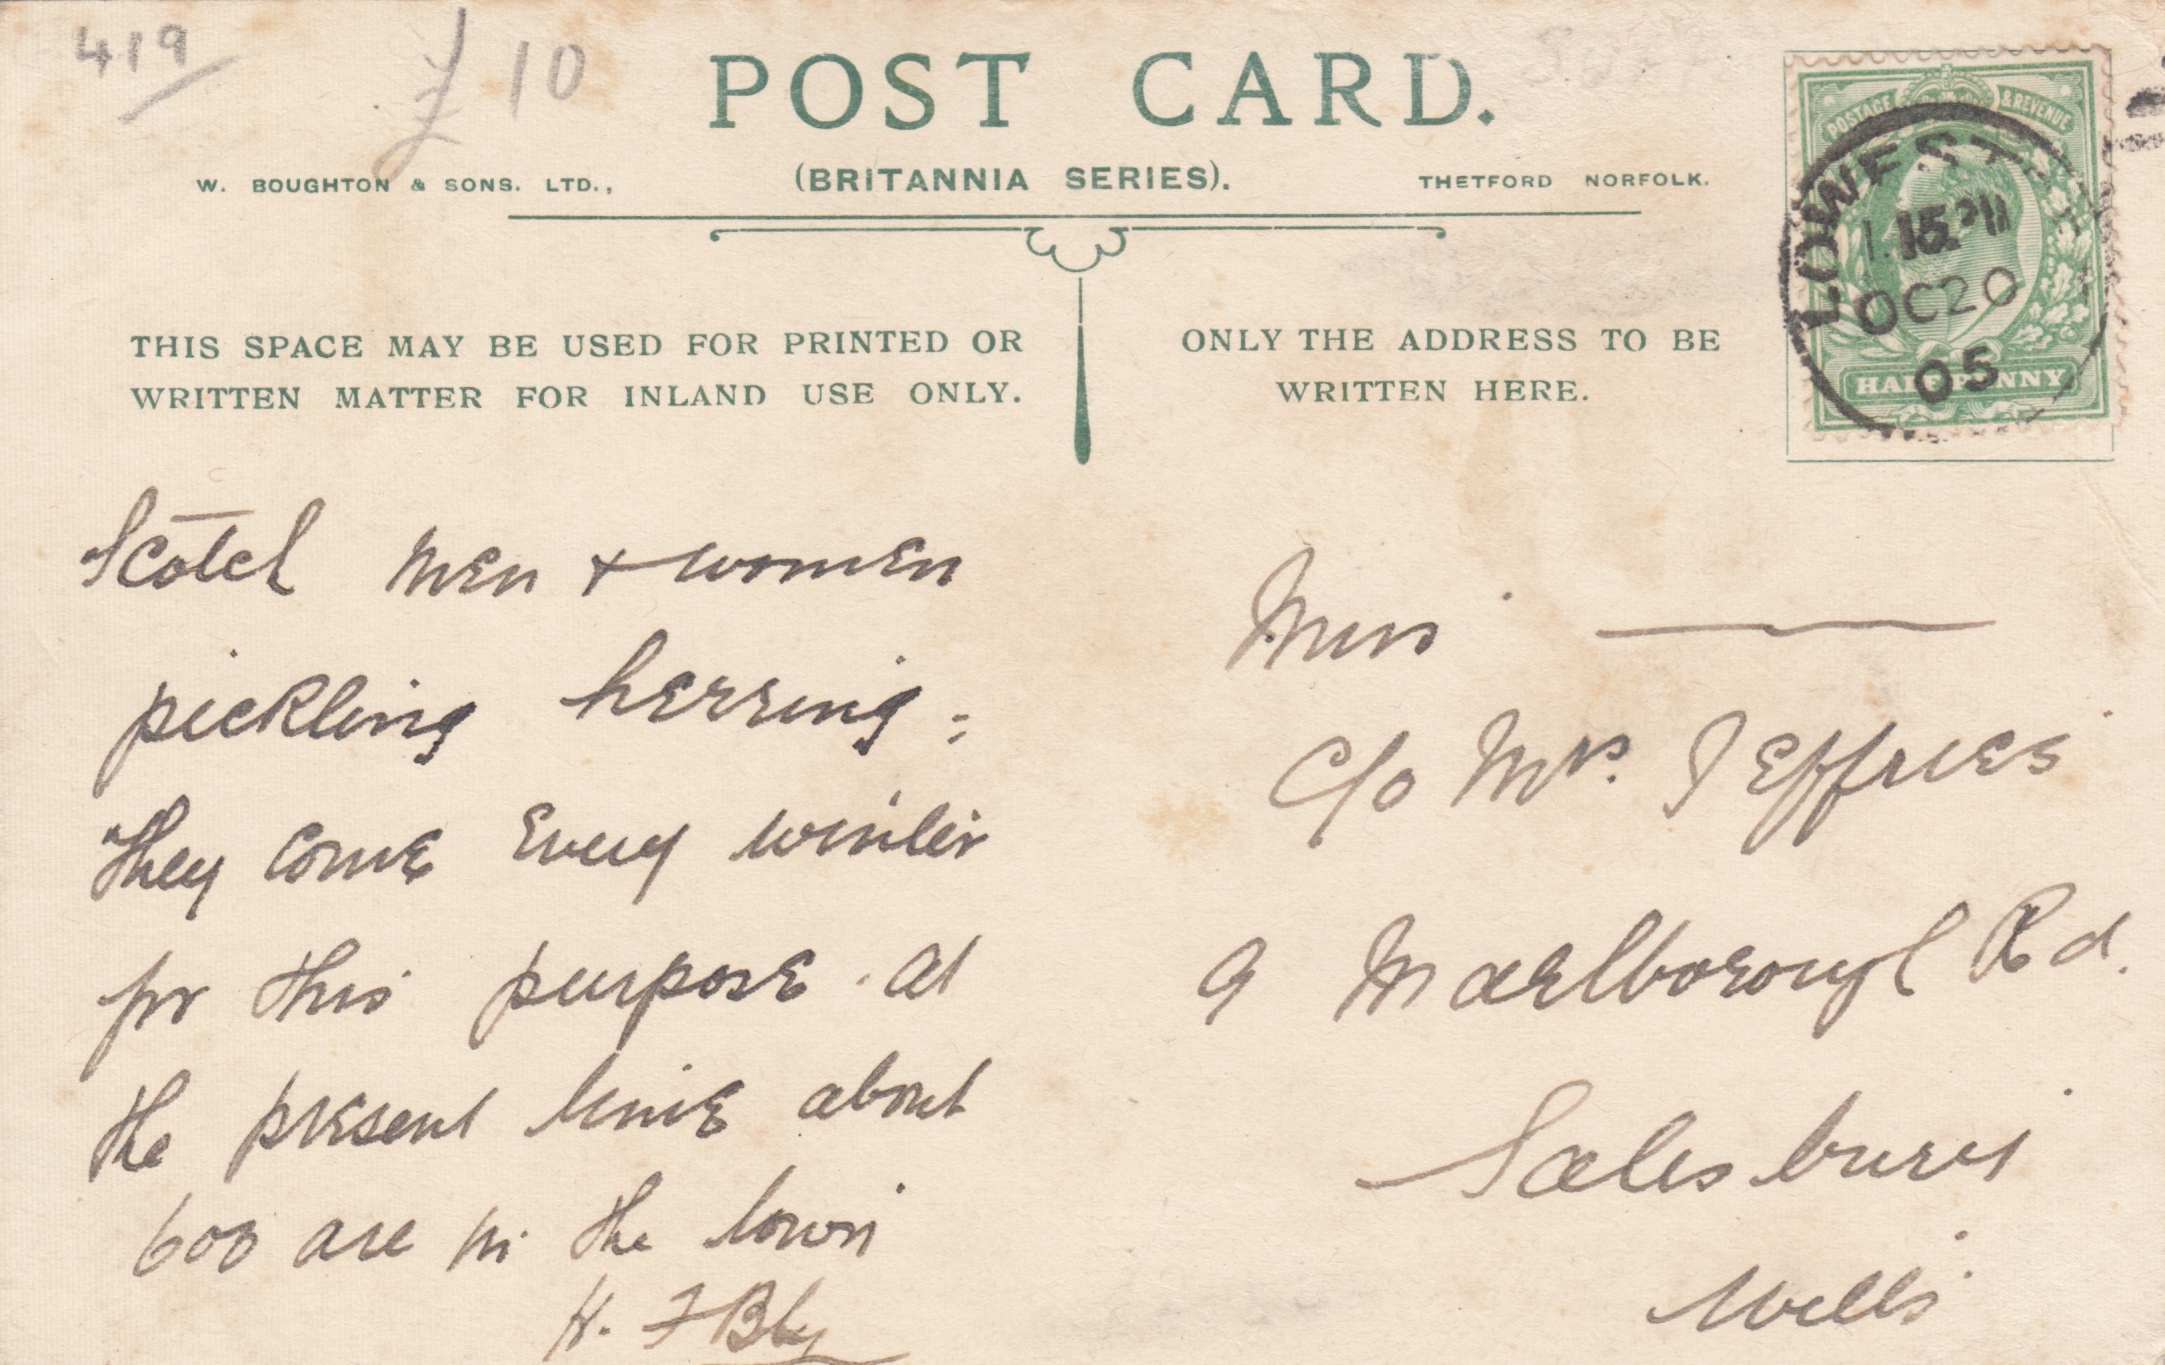 419
£10
POST CARD.
W. BOUGHTON & SONS. LTD.,
(BRITANNIA SERIES).
THETFORD NORFOLK.
POSTAGE & REVENUE
LOWESTOFT
1.15.PM
OC 20
05
HALFPENNY
THIS SPACE MAY BE USED FOR PRINTED OR
WRITTEN MATTER FOR INLAND USE ONLY.
ONLY THE ADDRESS TO BE
WRITTEN HERE.
Scotch men + women
pickling herring;
they come every winter
for this purpose. At
the present time about
600 are in the town
H. F Bly
Miss ———
c/o Mrs. Jeffries
9 Marlborough Rd.
Salisbury
Wilts